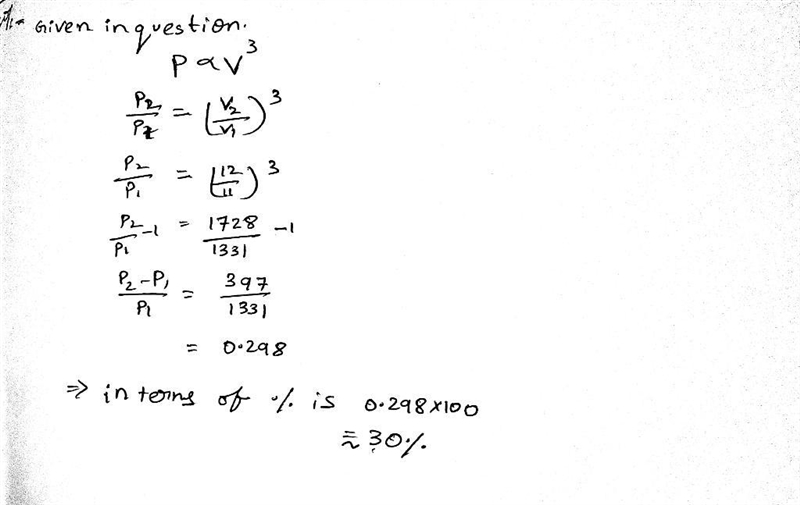 Given in question.
P ∝ V³
P₂/P₁ = (V₂/V₁)³
P₂/P₁ = (12/11)³
P₂/P₁ -1 = 1728/1331 -1
P₂-P₁/P₁ = 397/1331
= 0.298
⇒ in terms of % is 0.298×100
≈ 30%